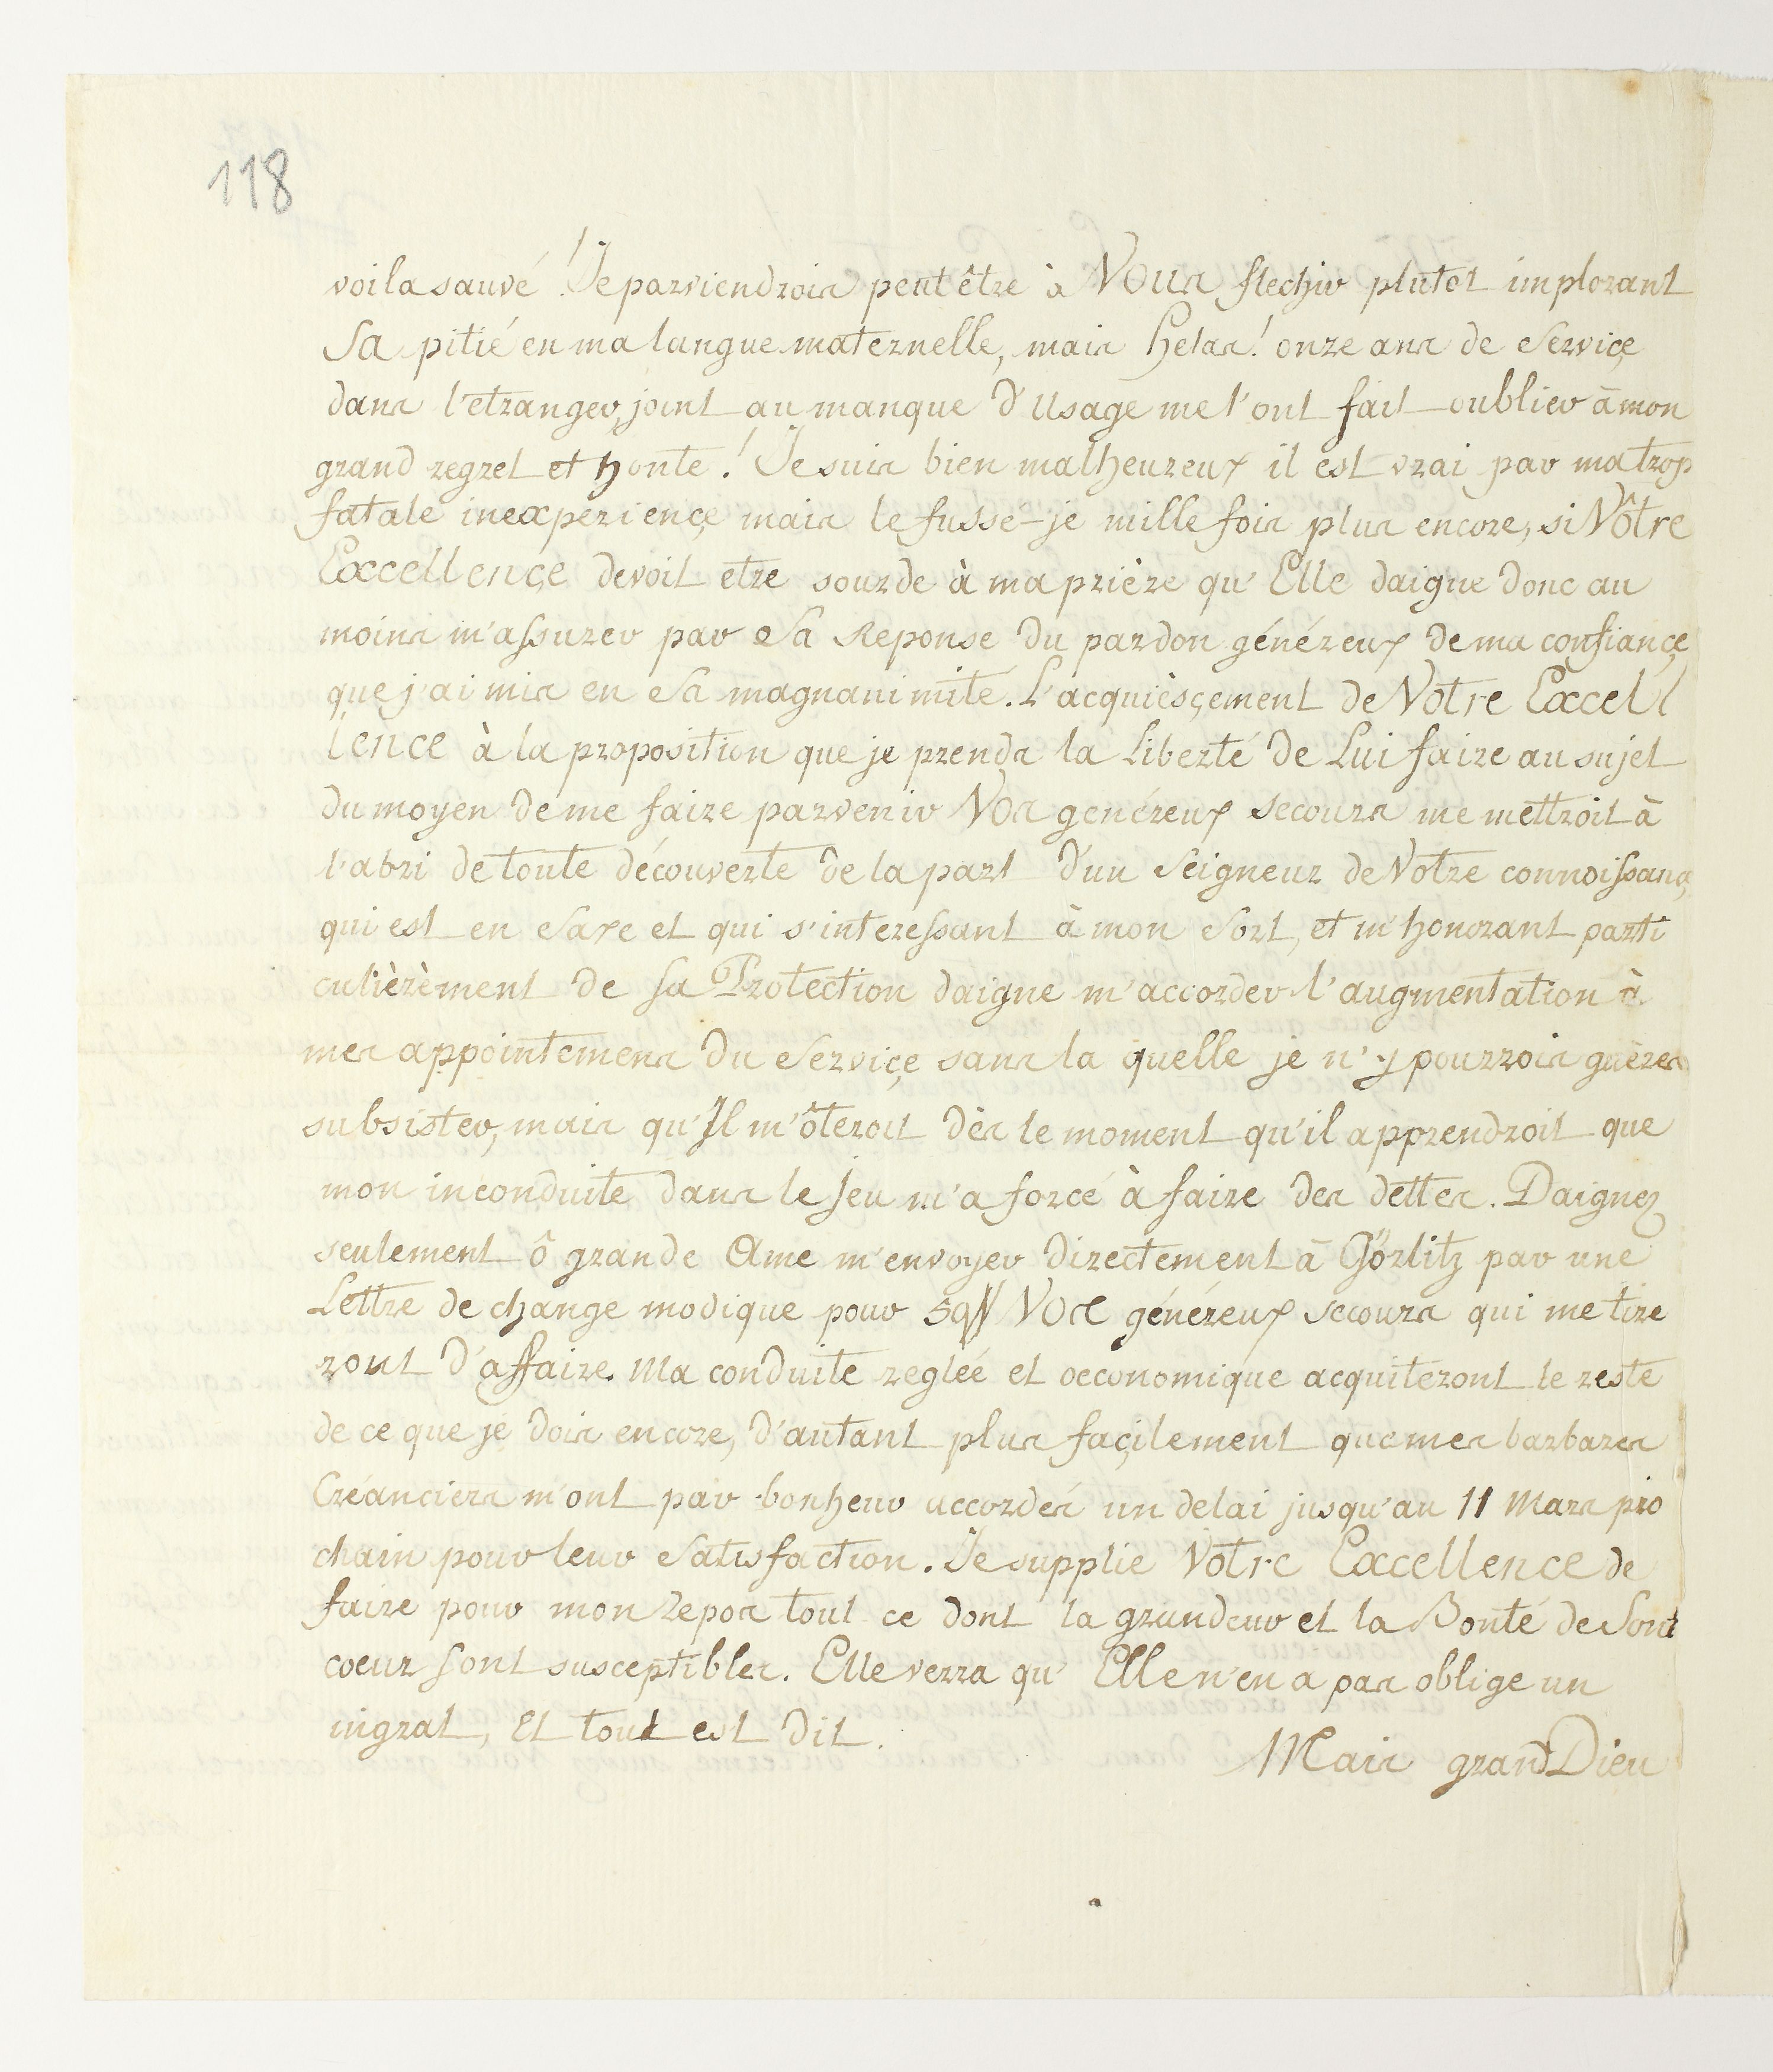 118
voila sauvé! Je parviendrois peut être à Vous flechir plutot implorant
Sa pitié en ma langue maternelle, mais helas! onze ans de Serviçe
dans l'etranger, joint au manque d'Usage me l'ont fait oublier à mon
grand regret et honte! Je suis bien malheureux il est vrai par ma trop
fatale inexperiençe mais le fusse-je mille fois plus encore, si Vôtre
Excellençe devoit etre sourde à ma prière qu'Elle daigne donc au
moins m'assurer par Sa Reponse du pardon généreux de ma confiançe
que j'ai mis en Sa magnanimité. L'acquièsçement de Votre Excell
lence à la proposition que je prends la Liberté de Lui faire au sujet
du moyen de me faire parvenir Vos genéreux secours me mettroit à
l'abri de toute découverte de la part d'un Seigneur de Votre connoissanç
qui est en Saxe et qui s'interessant à mon Sort, et m'honorant parti
culièrèment de Sa Protection daigne m'accorder l'augmentation à
mes appointemens du Serviçe sans la quelle je n'y pourrois guères
subsister, mais qu'Il m'ôteroit dès le moment qu'il apprendroit que
mon inconduite dans le Jeu m'a forcé à faire des dettes. Daignez
seulement ô grande Ame m'envoyer directement à Görlitz par une
Lettre de change modique pour 50# Vos généreux secours qui me tire
ront d'affaire. Ma conduite reglée et oeconomique acquiteront le reste
de ce que je dois encore, d'autant plus façilement que mes barbares
Créanciers m'ont par bonheur accordés un delai jusqu'au 11 Mars pro
chain pour leur Satisfaction. Je supplie Votre Excellence de
faire pour mon repos tout ce dont la grandeur et la Bonté de Son
coeur sont susceptibles. Elle verra qu'Elle n'en a pas oblige un
ingrat, Et tout est dit.
Mais grand Dieu